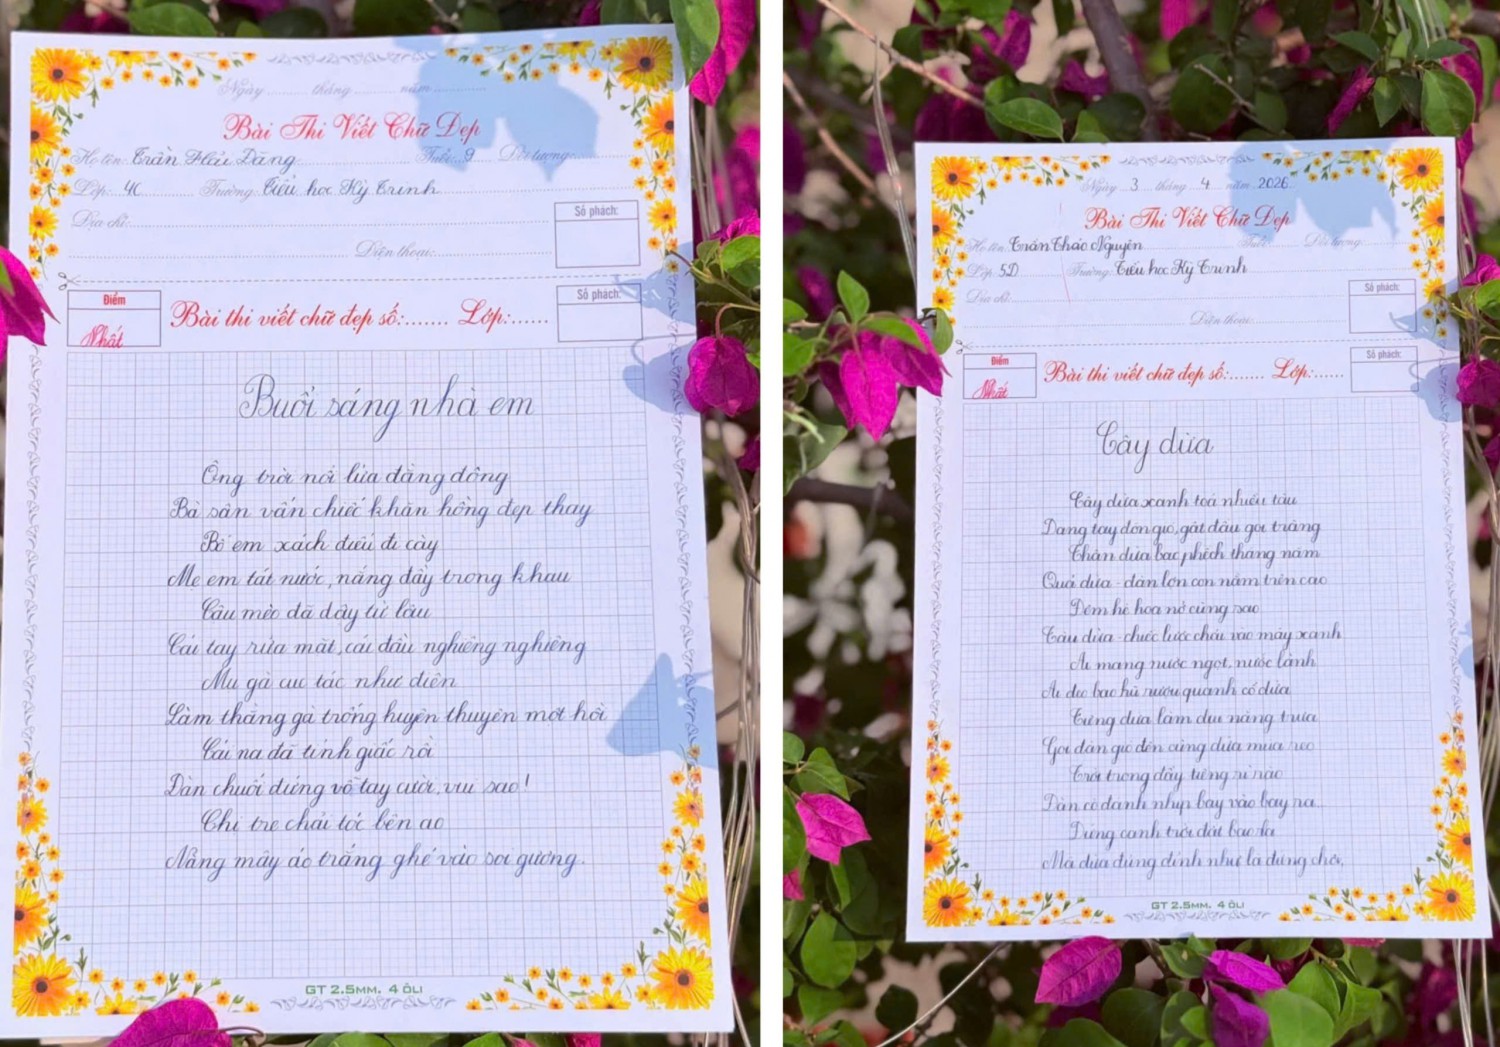 Ngày ........ tháng ........ năm ............
Bài Thi Viết Chữ Đẹp
Họ tên: Trần Hải Đăng Tuổi: 9 Đối tượng:
Lớp: 4C Trường: Tiểu học Kỳ Trinh
Địa chỉ:
Điện thoại:
Số phách:
Điểm
Nhất
Bài thi viết chữ đẹp số:....... Lớp:......
Số phách:
Buổi sáng nhà em
Ông trời nổi lửa đằng đông
Bà sân vấn chiếc khăn hồng đẹp thay
Bố em xách điếu đi cày
Mẹ em tát nước, nắng đầy trong khau
Cậu mèo đã dậy từ lâu
Cái tay rửa mặt, cái đầu nghiêng nghiêng
Mụ gà cục tác như điên
Làm thằng gà trống huyên thuyên một hồi
Cái na đã tỉnh giấc rồi
Đàn chuối đứng vỗ tay cười, vui sao!
Chị tre chải tóc bên ao
Nàng mây áo trắng ghé vào soi gương.
GT 2.5MM. 4 ÔLI
Ngày 3 tháng 4 năm 2026
Bài Thi Viết Chữ Đẹp
Họ tên: Trần Thảo Nguyên Tuổi: Đối tượng:
Lớp: 5D Trường: Tiểu học Kỳ Trinh
Địa chỉ:
Điện thoại:
Số phách:
Điểm
Nhất
Bài thi viết chữ đẹp số:....... Lớp:......
Số phách:
Cây dừa
Cây dừa xanh toả nhiều tàu
Dang tay đón gió, gật đầu gọi trăng
Thân dừa bạc phếch tháng năm
Quả dừa - đàn lợn con nằm trên cao
Đêm hè hoa nở cùng sao
Tàu dừa - chiếc lược chải vào mây xanh
Ai mang nước ngọt, nước lành
Ai đeo bao hũ rượu quanh cổ dừa
Tiếng dừa làm dịu nắng trưa
Gọi đàn gió đến cùng dừa múa reo
Trời trong đầy tiếng rì rào
Đàn cò đánh nhịp bay vào bay ra
Đứng canh trời đất bao la
Mà dừa đủng đỉnh như là đứng chơi.
GT 2.5MM. 4 ÔLI